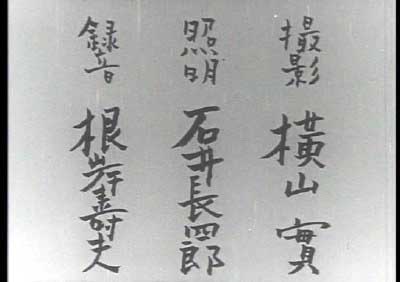 撮影 横山 實
照明 石井長四郎
録音 根岸壽夫